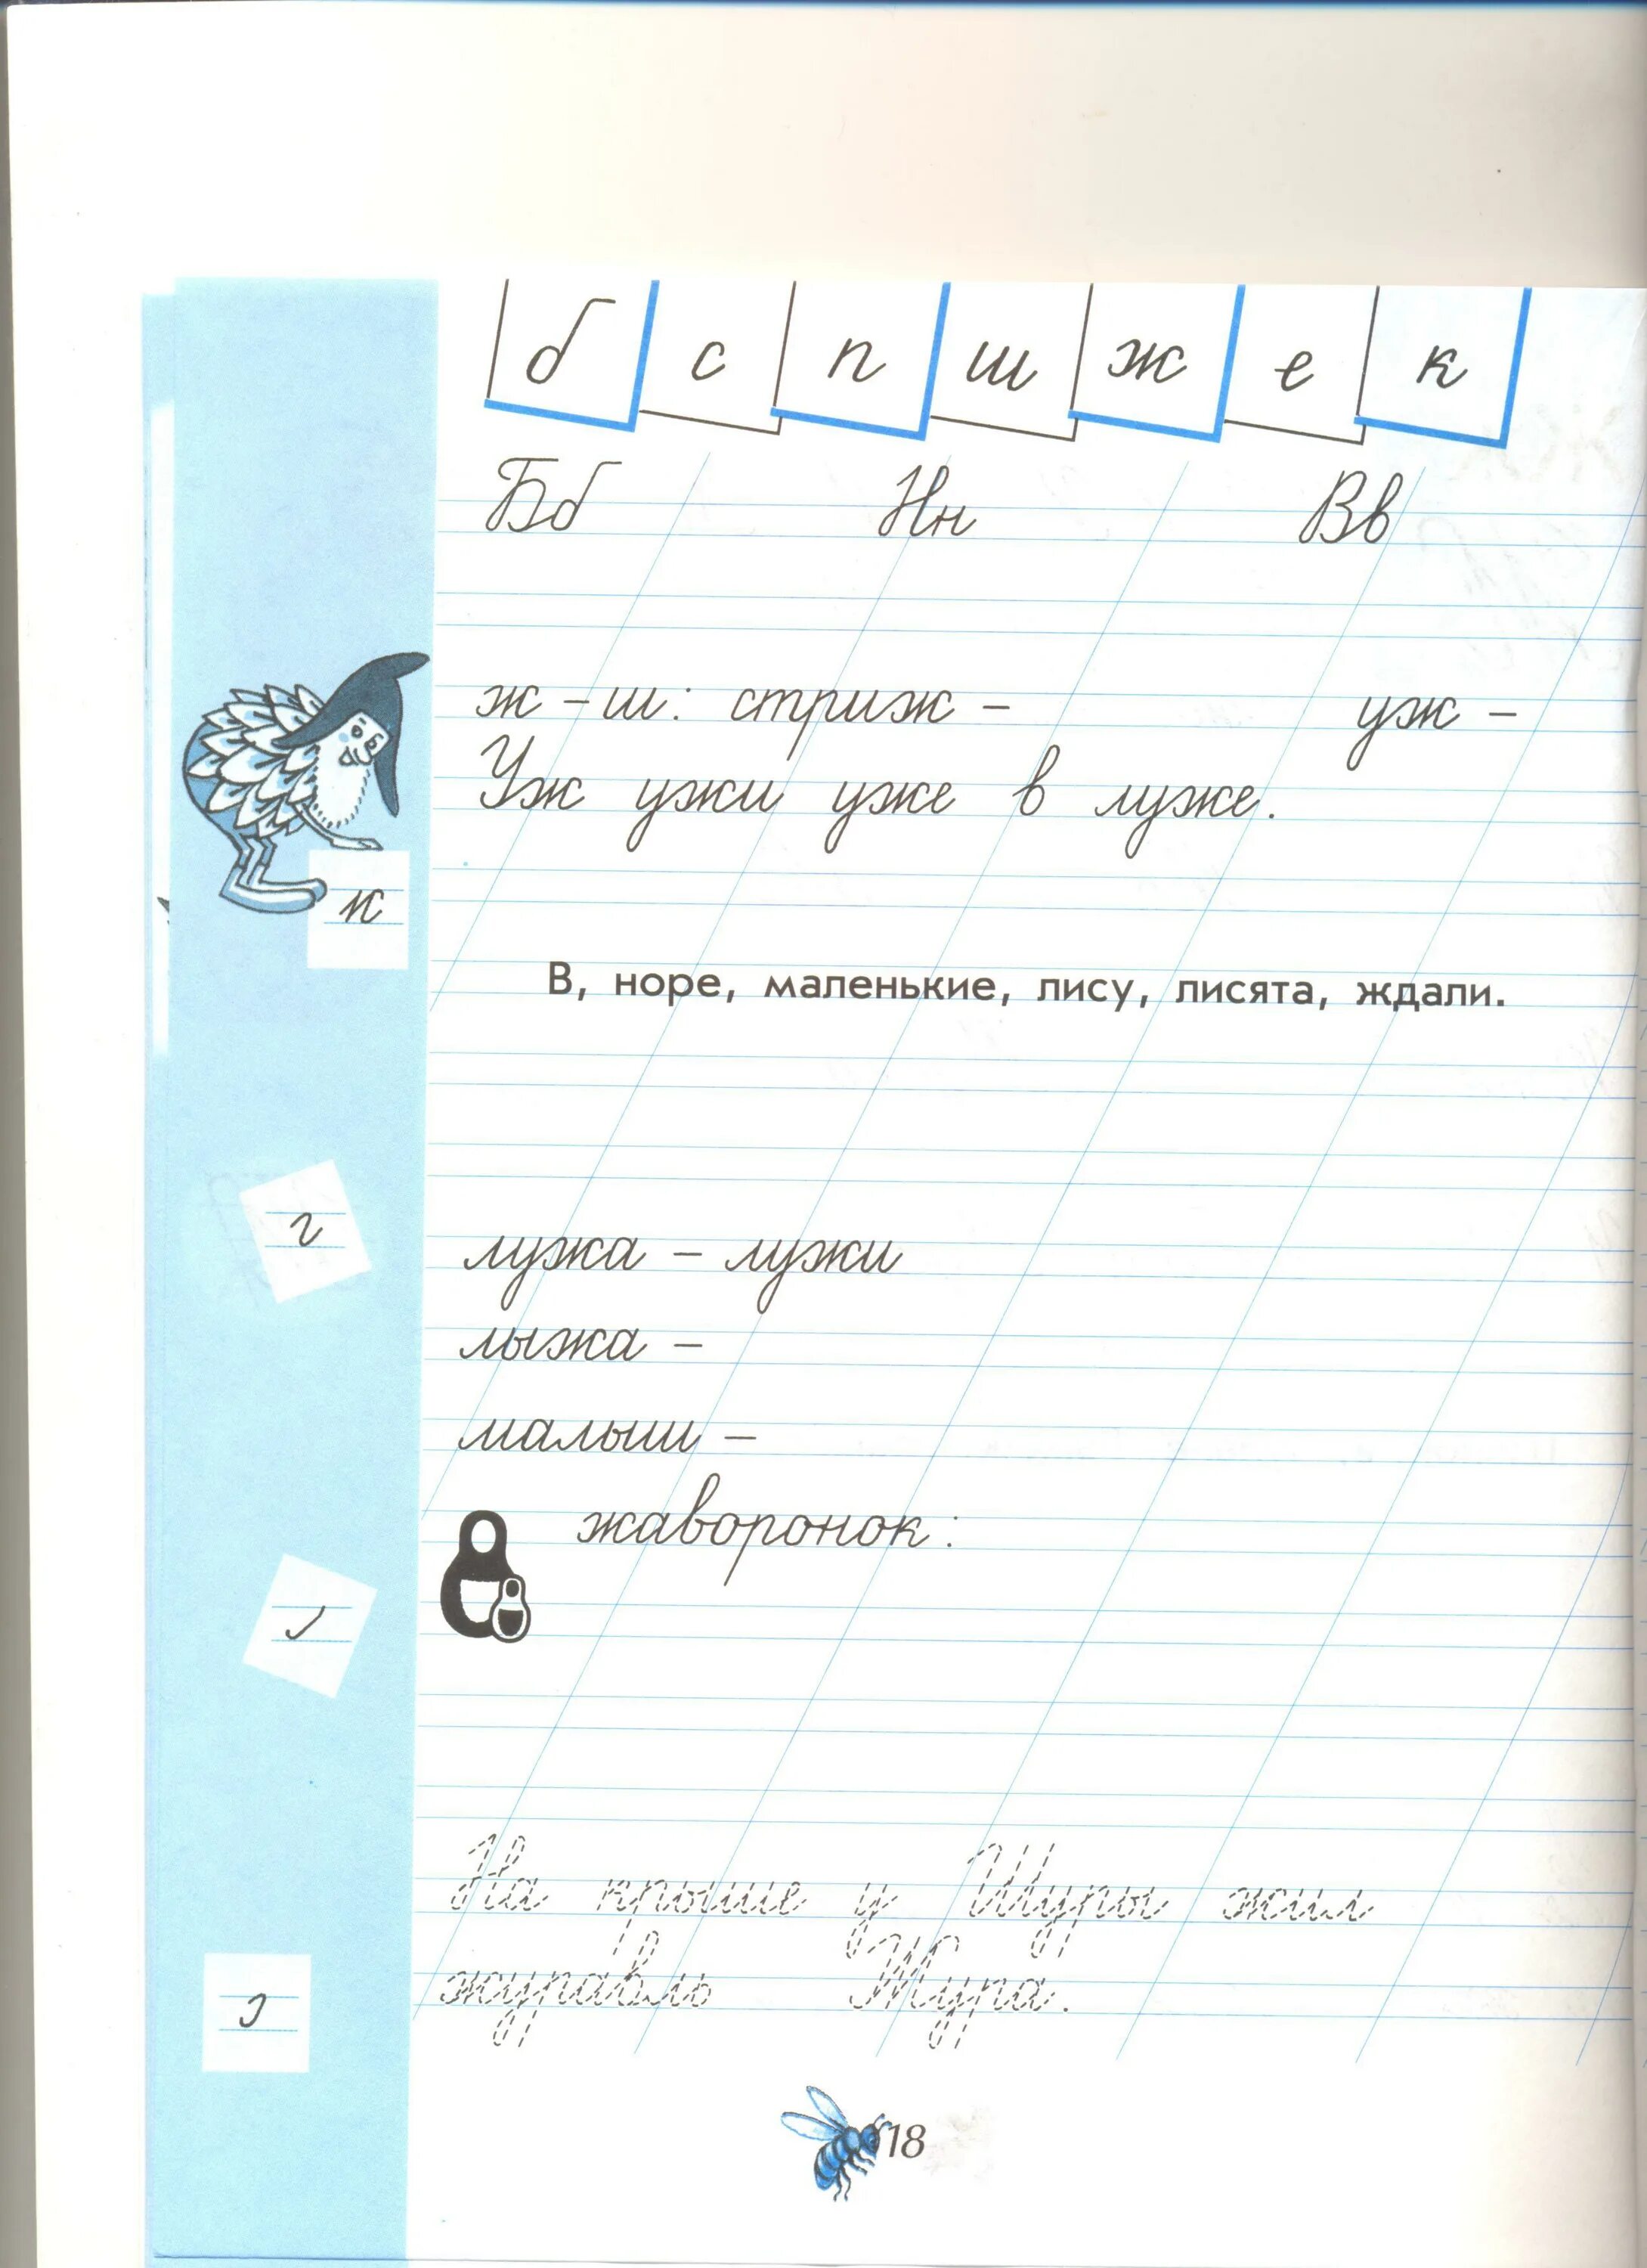 б с п ш ж е к
Бб Нн Вв
ж – ш: стриж – уж –
Уж ужи уже в луже.
к
В, норе, маленькие, лису, лисята, ждали.
г
лужа – лужи
лыжа –
малыш –
жаворонок:
На крыше у Шуры жил
журавль Жура.
18